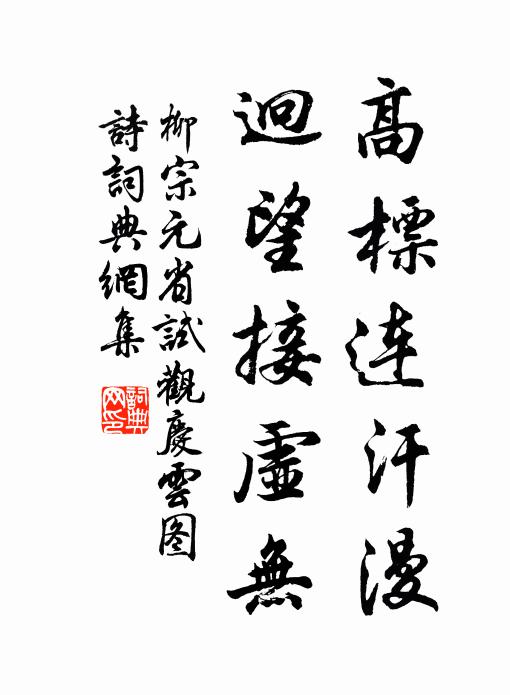 高標連汗漫
迥望接虛無
柳宗元省試觀慶雲图
詩詞典網集
詞典网印